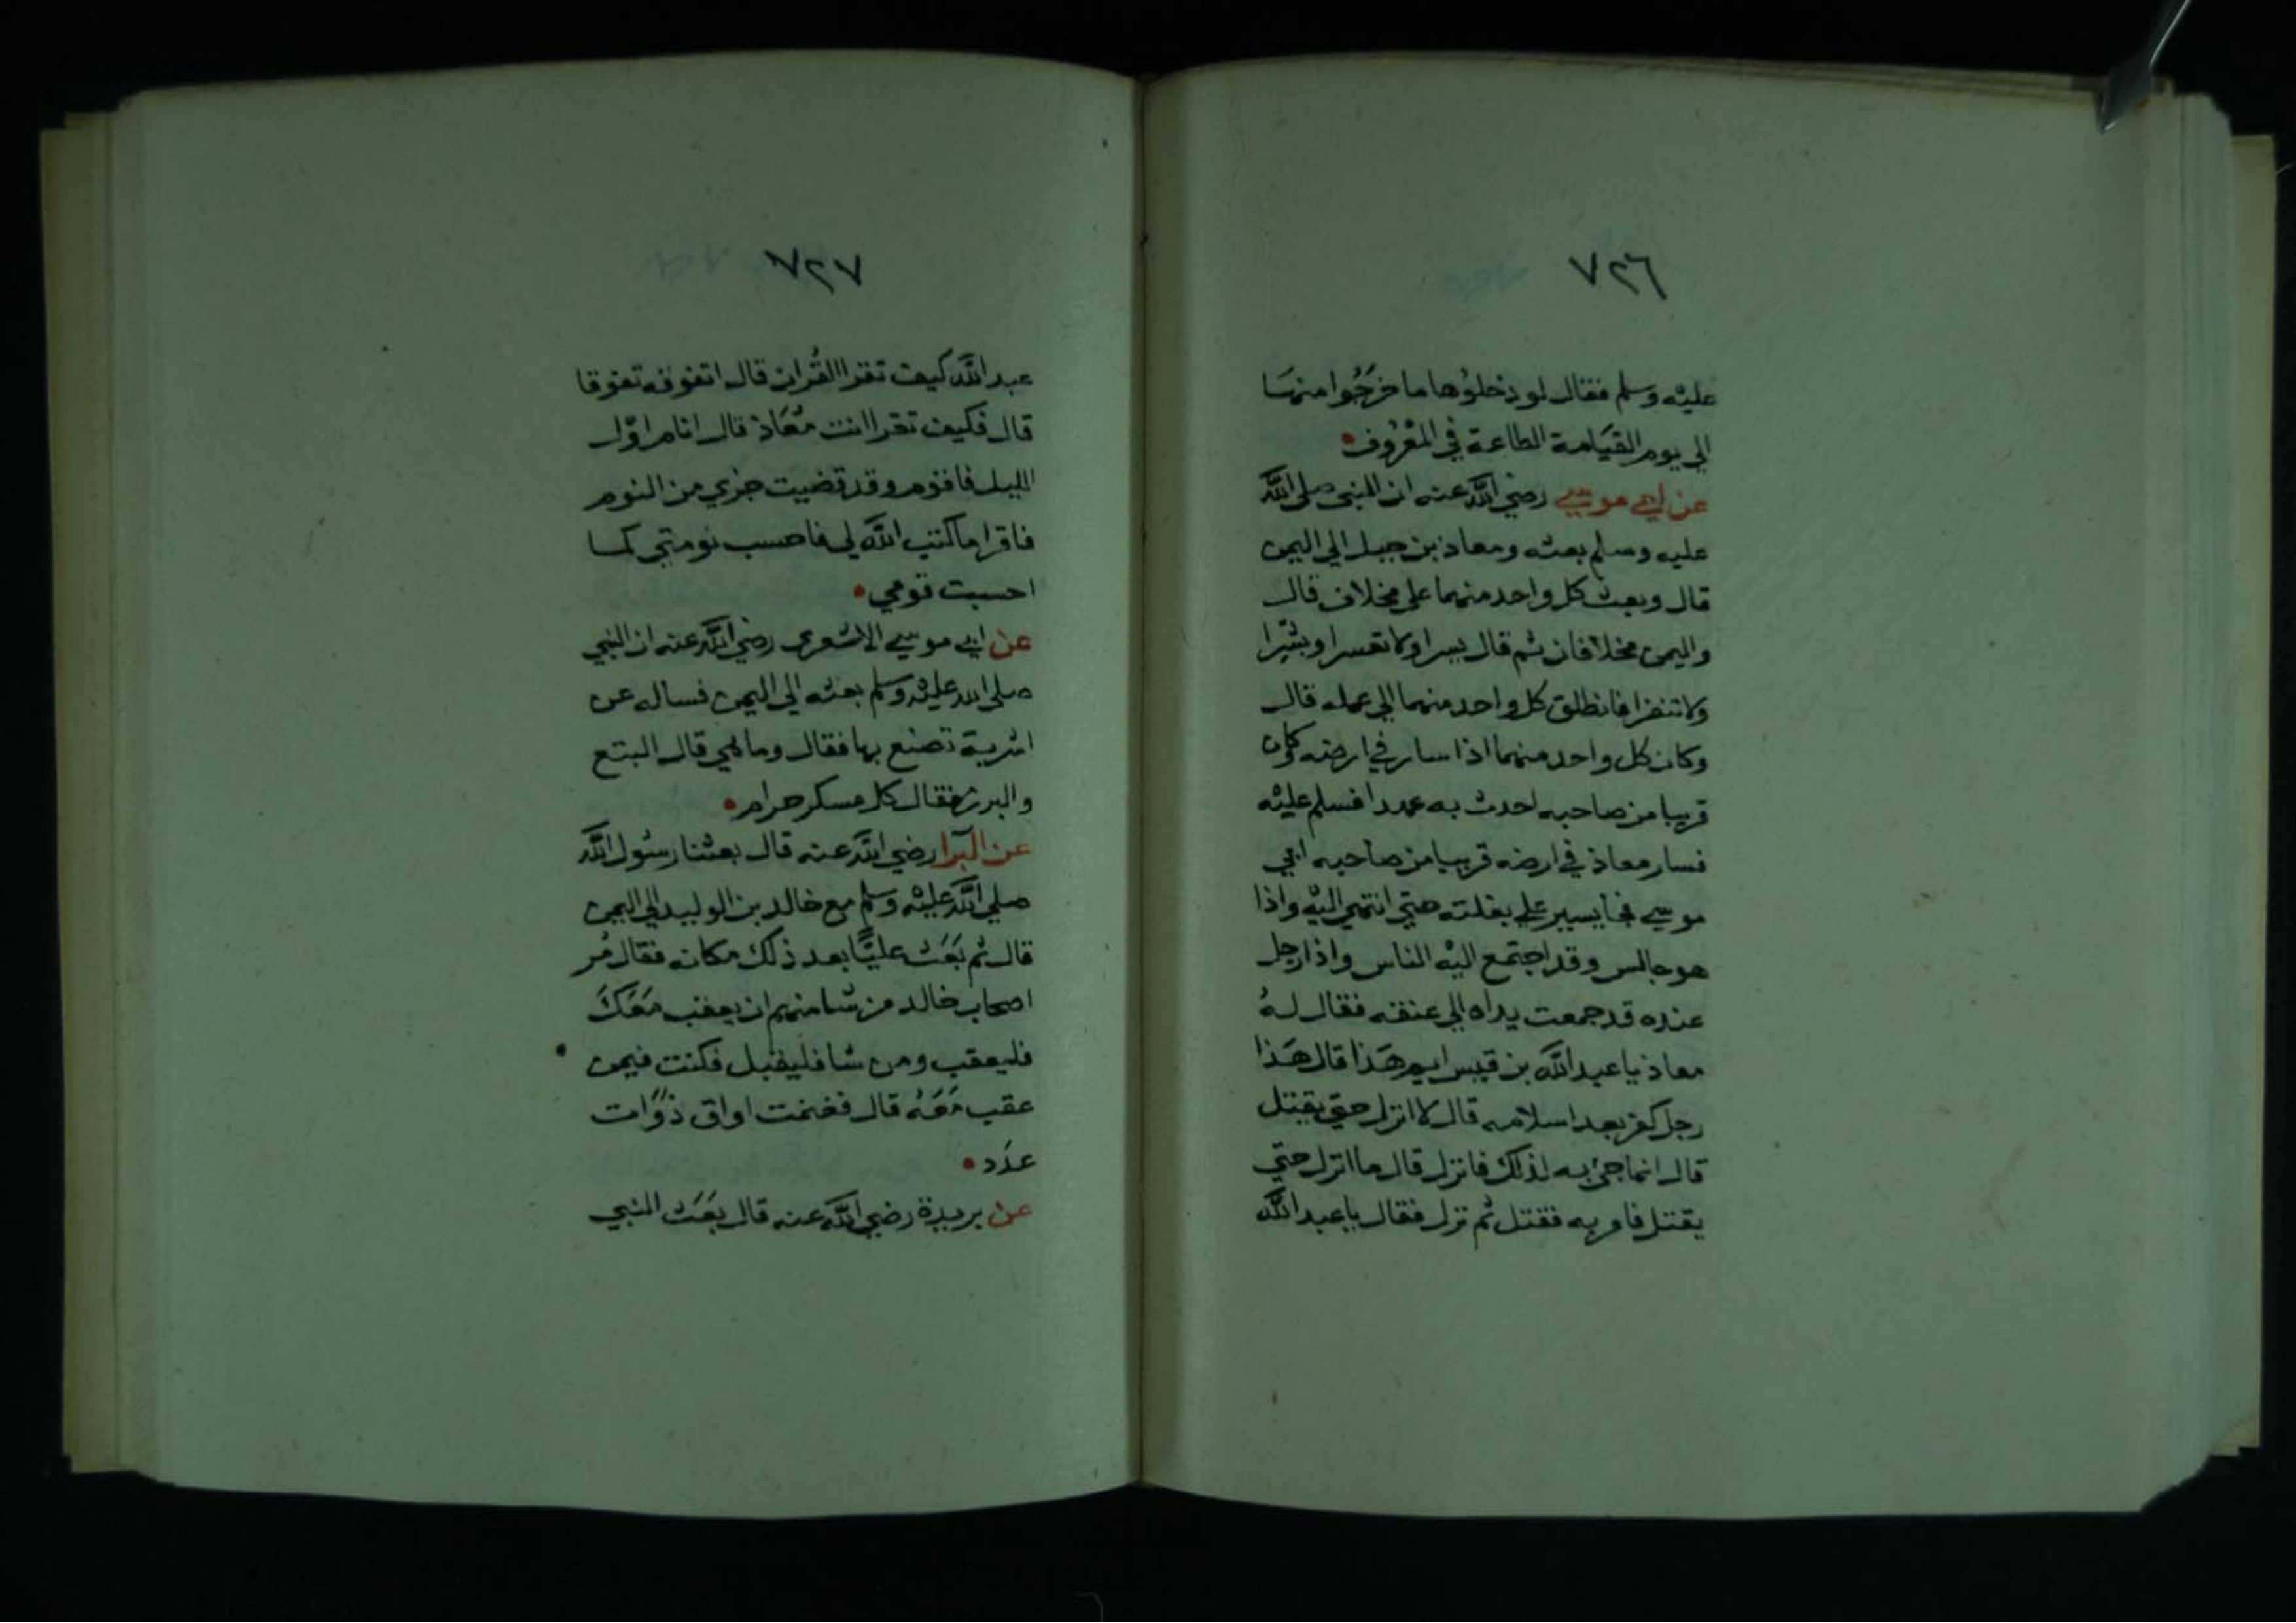 ٧٢٦
عليْه وسلم فقال لو دخلوُها ما خرَجُوا منهَا
الي يوم القيَامة الطاعة في المعْرُوف
عن ابي موسي رضي اللَّه عنه ان النبي صلي اللَّه
عليه وسلم بعثه ومعاذ بن جبل الي اليمن
قال وبعث كل واحد منهما علي مخلاف قال
واليمن مخلافان ثم قال يسرا ولا تعسرا وبشّرا
ولا تنفرا فانطلق كل واحد منهما الي عمله قال
وكان كل واحد منهما اذا سار في ارضه وكان
قريبا من صاحبه احدث به عهدا فسلم عليْه
فسار معاذ في ارضه قريبا من صاحبه ابي
موسي فجا يسير علي بغلته حتي انتهي اليْه واذا
هو جالس وقد اجتمع اليْه الناس واذا رجل
عنده قد جمعت يداه الي عنقه فقال لهُ
معاذ يا عبد اللَّه بن قيس ايم هَذا قال هَذا
رجل كفر بعد اسلامه قال لا انزل حتي يقتل
قال انما جئ به لذلك فانزل قال ما انزل حتي
يقتل فامر به فقتل ثم نزل فقال يا عبد اللَّه
٧٢٧
عبد اللَّه كيف تقرا القُران قال اتفوقه تفوقا
قال فكيف تقرا انت مُعَاذ قال انام اوّل
الليل فاقوم وقد قضيت جزي من النوم
فاقرا ما كتب اللَّه لي فاحسب نومتي كما
احسبت قومي
عن ابي موسي الاشعري رضي اللَّه عنه ان النبي
صلي الله عليْه وسلم بعثه الي اليمن فساله عن
اشربة تصنع بها فقال وما هي قال البتع
والبرز فقال كل مسكر حرام
عن البَرا رضي اللَّه عنه قال بعثنا رسُول اللَّه
صلي اللَّه عليْه وسلم مع خالد بن الوليد الي اليمن
قال ثم بَعَث عليًّا بعد ذلك مكانه فقال مُر
اصحاب خالد من شا منهم ان يعقب مَعَكَ
فليعقب ومن شا فليقبل فكنت فيمن
عقب مَعَهُ قال فغنمت اواق ذوَات
عدَد
عن بريدة رضي اللَّه عنه قال بَعَث النبي